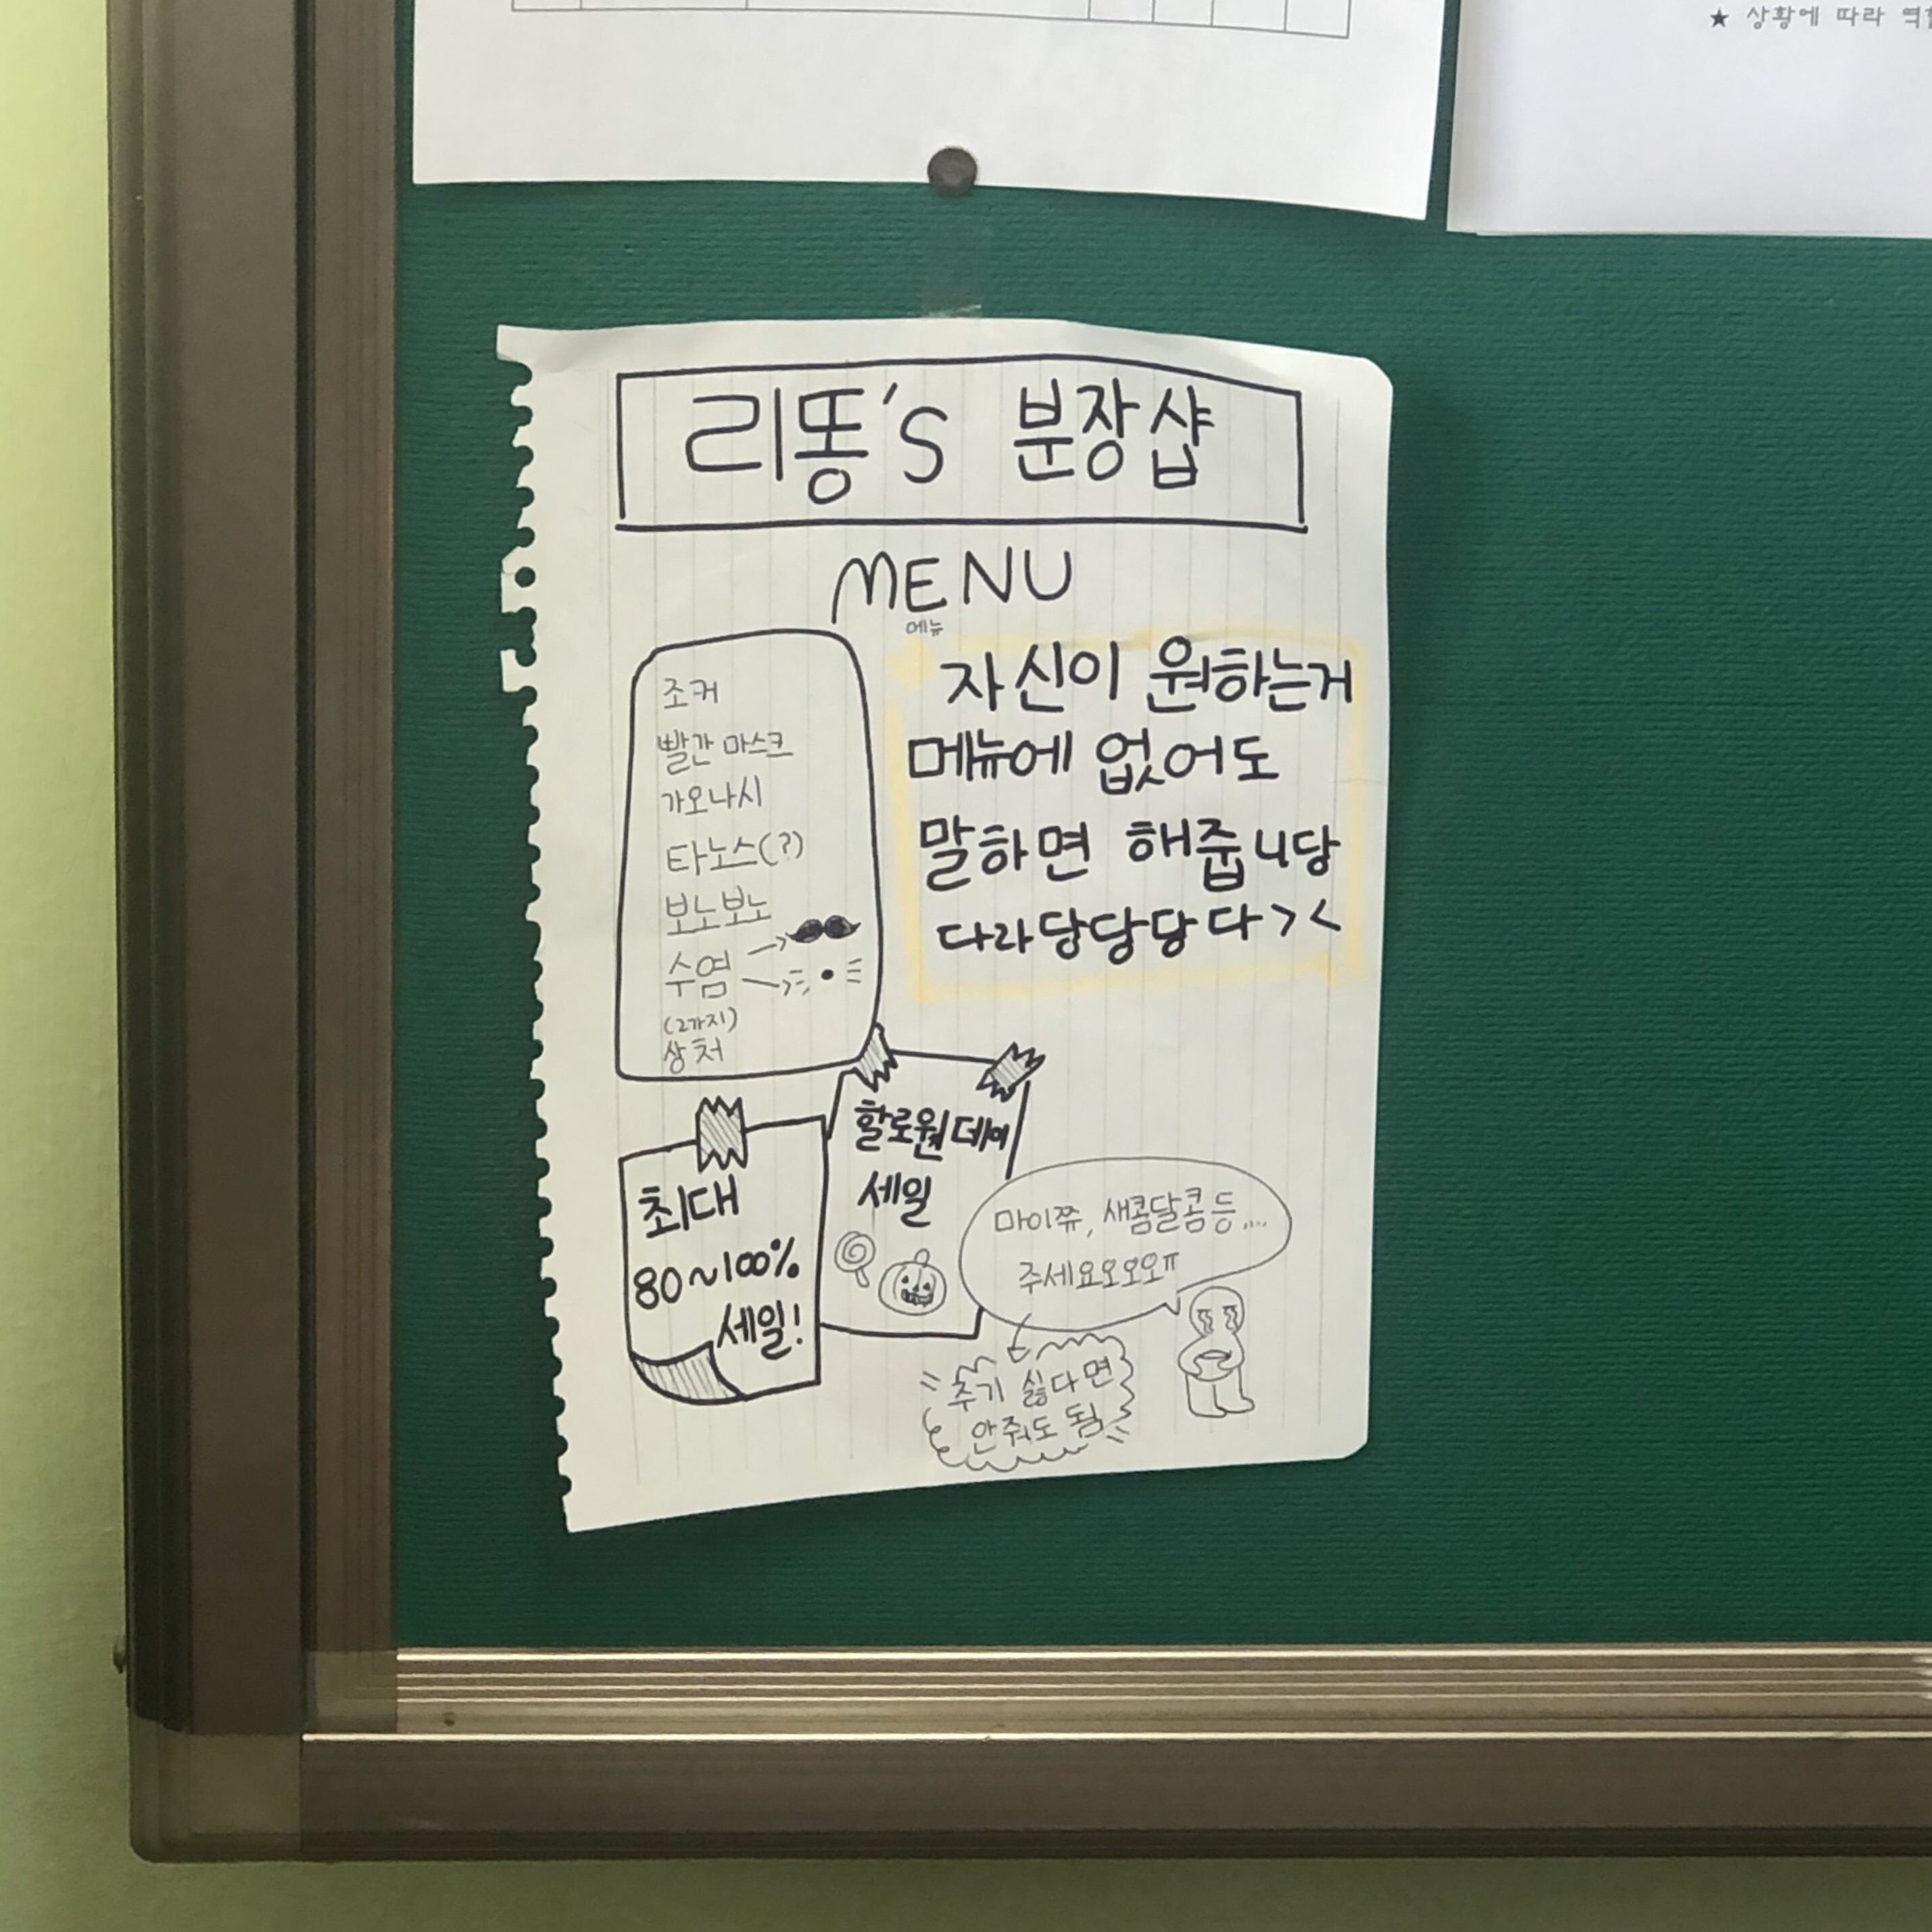 ★ 상황에 따라
리똥's 분장샵
MENU
메뉴
조커
빨간 마스크
가오나시
타노스(?)
보노보노
수염
(2가지)
상처
자신이 원하는거
메뉴에 없어도
말하면 해줍니당
다라당당당다><
최대
80~100%
세일!
할로윈데이
세일
마이쮸, 새콤달콤등....
주세요오오오ㅠ
주기 싫다면
안줘도 됨